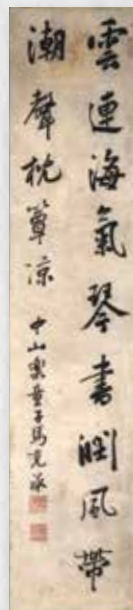 雲連海氣琴書潤風帶
潮聲枕簟凉
中山樂童子馬克承